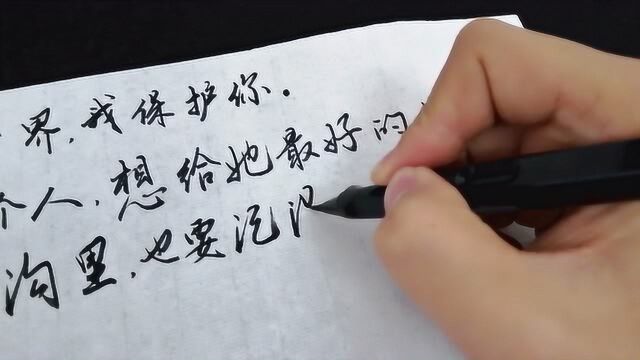 界,我保护你.
个人,想给她最好的
沟里,也要